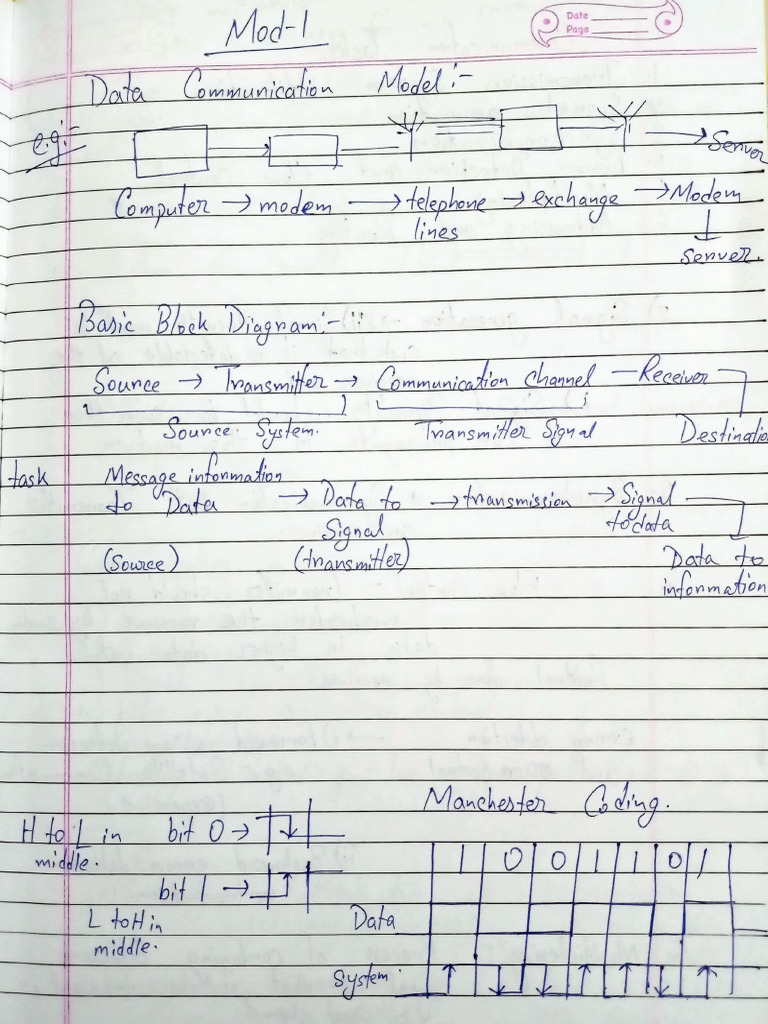 Mod-1
Date
Page
Data Communication Model:-
e.g:-
→ Server
Computer → modem → telephone lines → exchange → Modem
↓
Server.
Basic Block Diagram:-
Source → Transmitter → Communication channel — Receiver
Source System. Transmitter Signal Destinatio
task Message information
to Data → Data to Signal → transmission → Signal to data
(Source) (transmitter) Data to information
Manchester Coding.
H to L in middle. bit 0 →
bit 1 →
L to H in middle.
1 0 0 1 1 0 1
Data
System.